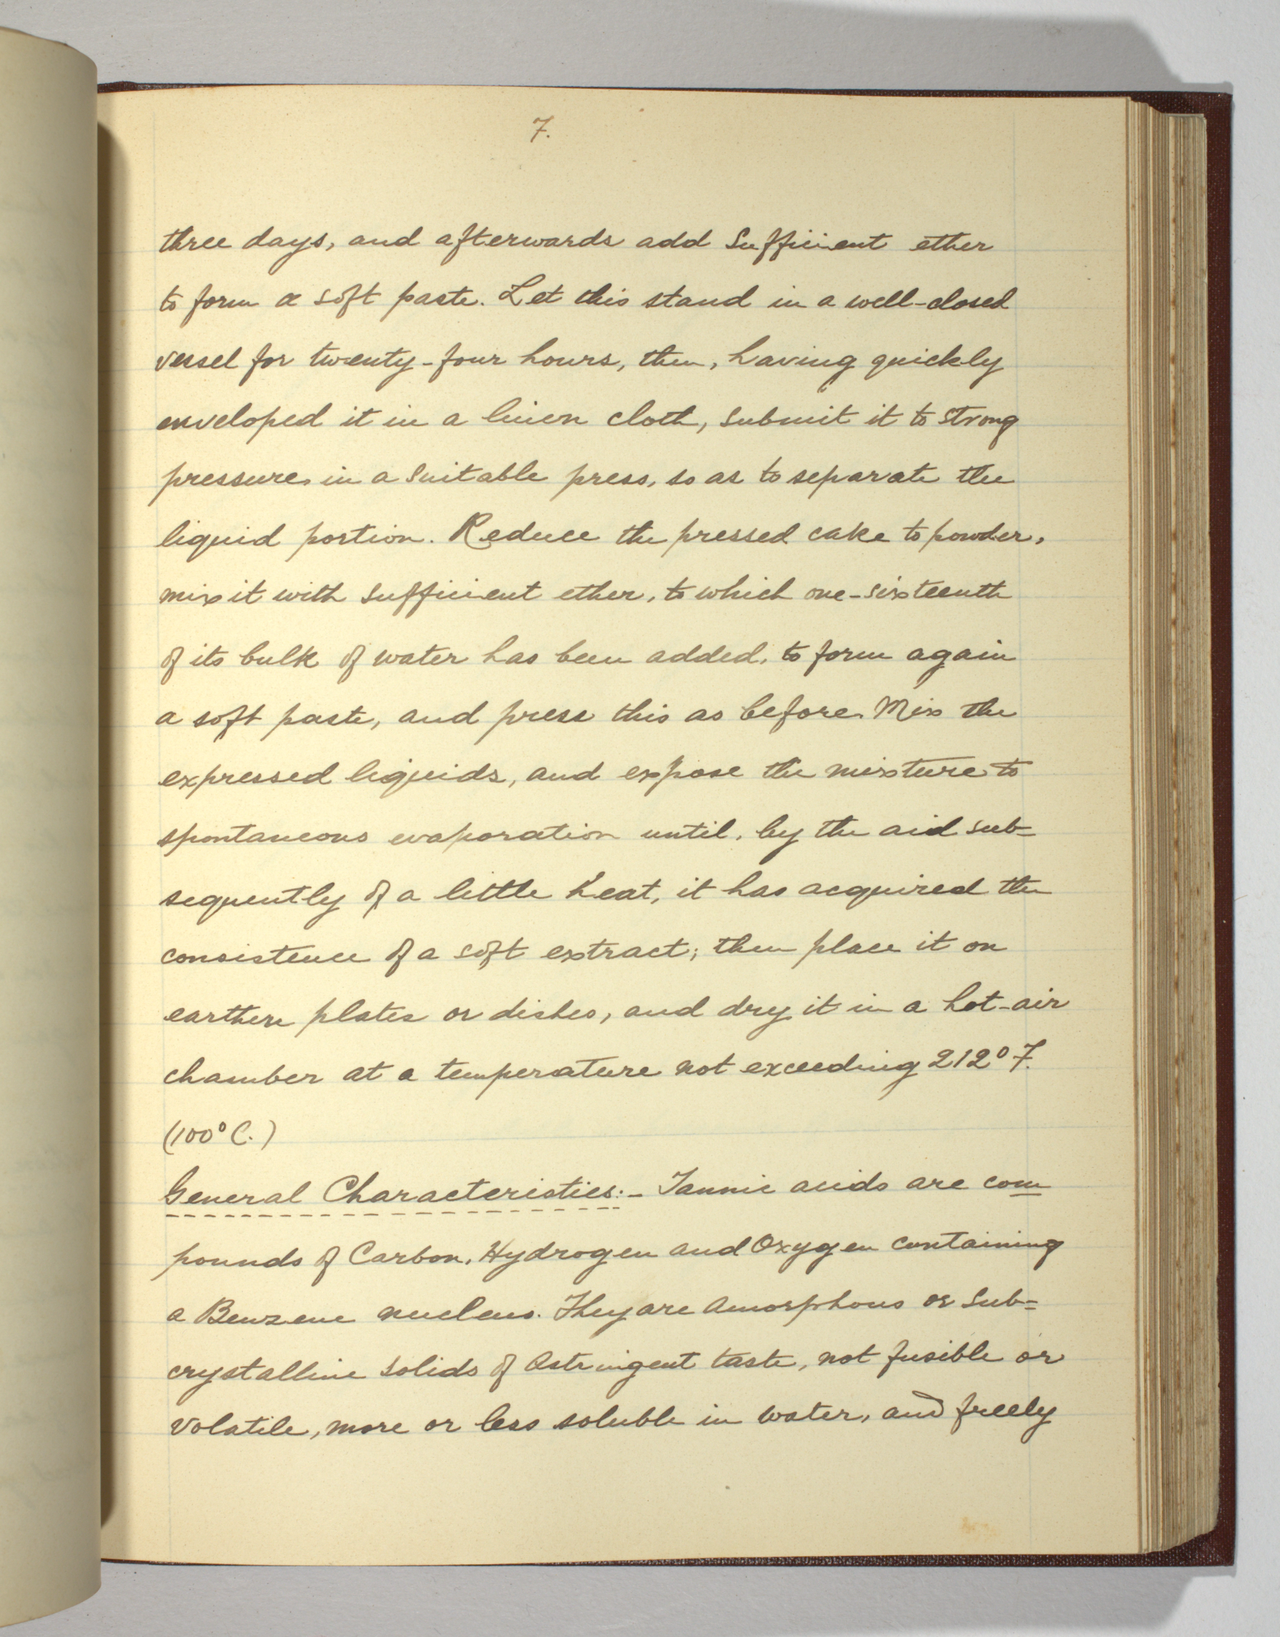 7.
three days, and afterwards add Sufficient ether
to form a soft paste. Let this stand in a well-closed
vessel for twenty-four hours, then, having quickly
enveloped it in a linen cloth, submit it to strong
pressure in a suitable press, so as to separate the
liquid portion. Reduce the pressed cake to powder,
mix it with sufficient ether, to which one-sixteenth
of its bulk of water has been added, to form again
a soft paste, and press this as before. Mix the
expressed liquids, and expose the mixture to
spontaneous evaporation until, by the aid sub=
sequently of a little heat, it has acquired the
consistence of a soft extract; then place it on
earthen plates or dishes, and dry it in a hot-air
chamber at a temperature not exceeding 212° F.
(100° C.)
General Characteristics:- Tannic acids are com
pounds of Carbon, Hydrogen and Oxygen containing
a Benzene nucleus. They are Amorphous or Sub=
crystalline Solids of Astringent taste, not fusible or
volatile, more or less soluble in water, and freely